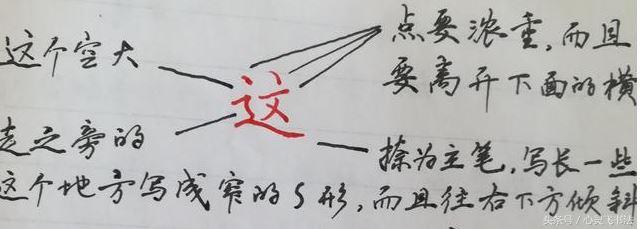 这个空大
点要浓重,而且
要离开下面的横
这
走之旁的
捺为主笔,写长一些
这个地方写成窄的S形,而且往右下方倾斜
头条号/心灵飞书法